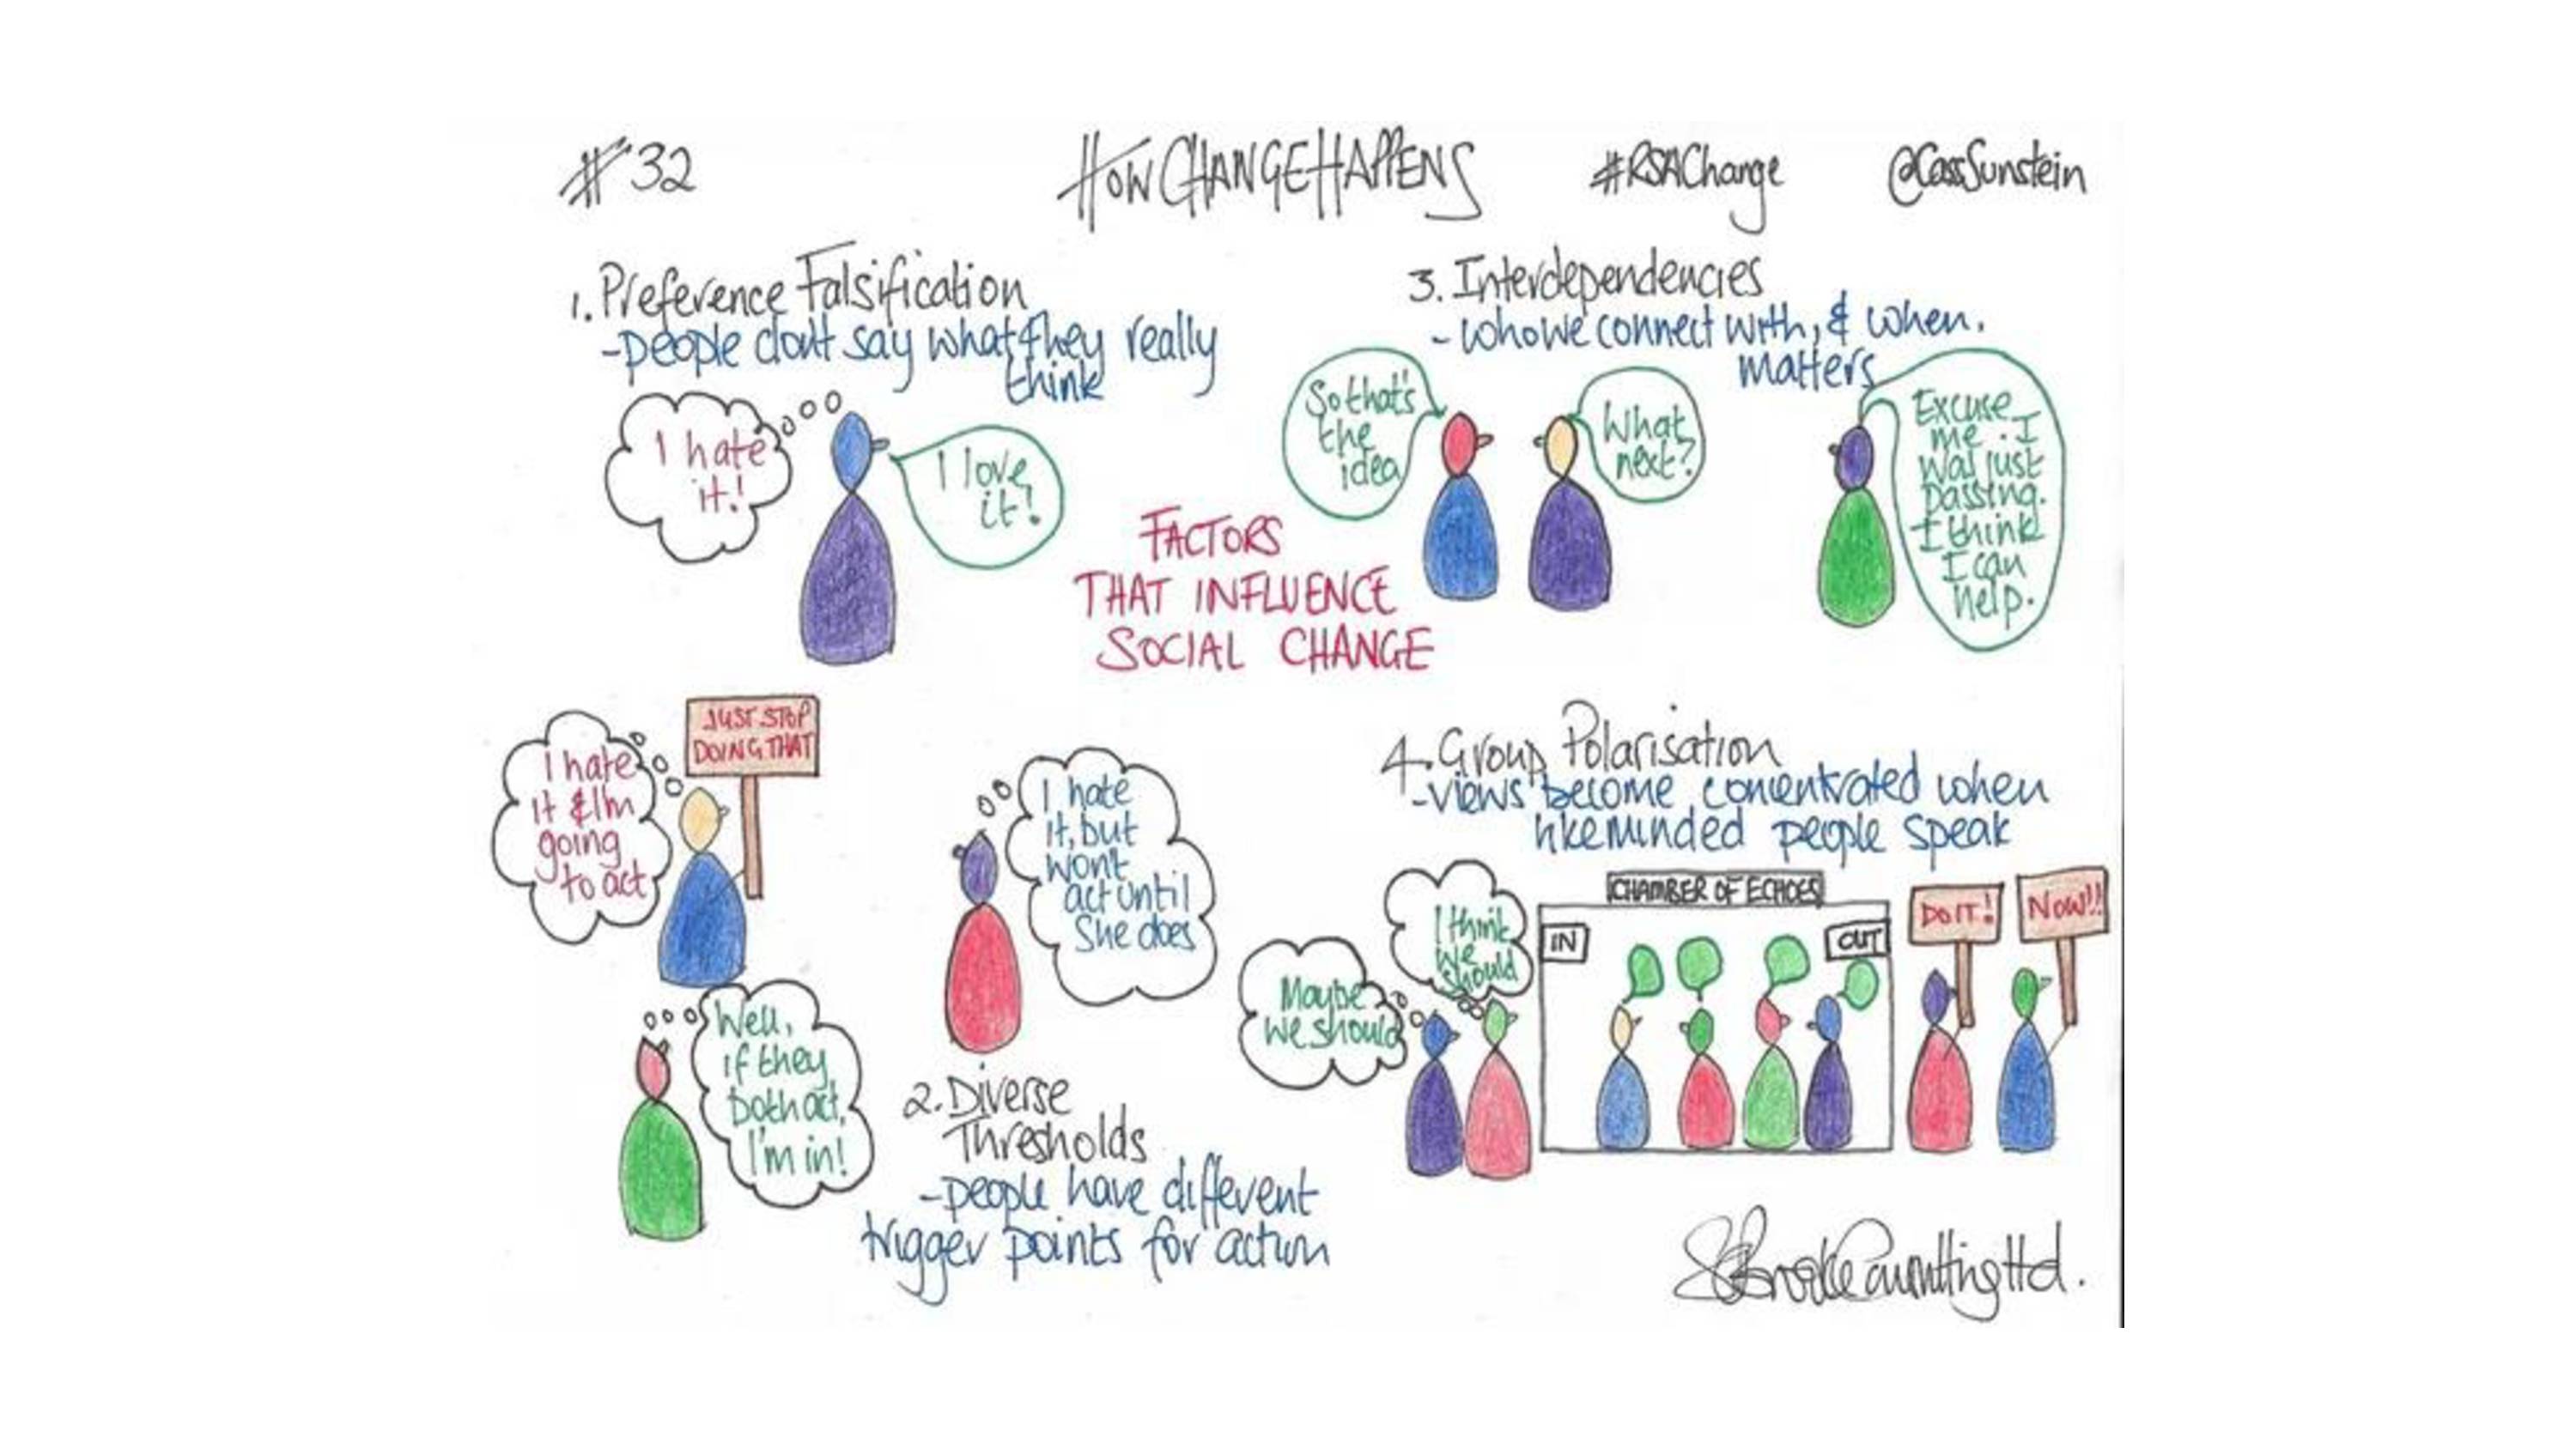 #32
HOW CHANGE HAPPENS
#RSAChange
@CassSunstein
1. Preference Falsification
- people don't say what they really
think
I hate
it!
I love
it!
FACTORS
THAT INFLUENCE
SOCIAL CHANGE
3. Interdependencies
- who we connect with, & when,
matters
So that's
the
idea
What
next?
Excuse
me. I
was just
passing.
I think
I can
help.
JUST STOP
DOING THAT
I hate
it & I'm
going
to act
I hate
it, but
won't
act until
she does
Well,
if they
both act,
I'm in!
2. Diverse
Thresholds
- people have different
trigger points for action
4. Group Polarisation
- views become concentrated when
likeminded people speak
CHAMBER OF ECHOES
IN
OUT
I think
we
should
Maybe
we should
DO IT!
NOW!!